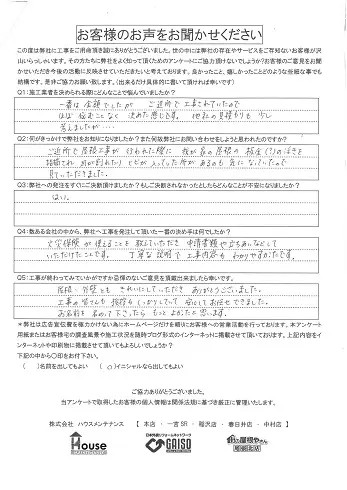 お客様のお声をお聞かせください
この度は弊社に工事をご用命頂き誠にありがとうございました。世の中には弊社の存在やサービスをご存知ないお客様が沢山いらっしゃいます。その方たちに弊社をよく知って頂くためのアンケートにご協力頂けないでしょうか?お客様のご意見をお聞かせいただき今後の活動に反映させていただきたいと考えております。良かったこと、嬉しかったことどのような些細な事でも結構です。是非ご協力お願い致します。(出来るだけ具体的に書いて頂ければ幸いです)
Q1:施工業者を決められる際にどんなことで悩んでいましたか?
一番は金額でしたが ご近所で工事されていたので
ほぼ悩むことなく決めた感じです。他社の見積もりも少し
考えましたが…
Q2:何がきっかけで弊社をお知りになりましたか?また何故弊社にお問い合わせをしようと思われたのですか?
ご近所で屋根工事が行われた際に 我が家の屋根の板金の浮きを
指摘され
見ていただきました。
Q3:弊社への発注をすぐにご決断頂けましたか?もしご決断されなかったとしたらどんなことが不安になりましたか?
はい。
Q4:数ある会社の中から、弊社へ工事を発注して頂いた一番の決め手は何でしたか?
火災保険が使えることも教えていただき 申請書類や立ち会いなどして
いただけたことです。丁寧な説明で工事内容もわかりやすかったです。
Q5:工事が終わってみていかがですか忌憚のないご意見を頂戴出来ましたら幸いです。
屋根・外壁ともきれいにしていただき ありがとうございました。
*弊社は広告宣伝費を極力かけない為にホームページだけを頼りにお客様への営業活動を行っております。本アンケート用紙またはお客様宅の調査風景や施工状況を随時ブログ形式のインターネットに掲載させて頂いております。上記内容をインターネットや印刷物に掲載させて頂いてもよろしいでしょうか?
下記の中から〇印をお付下さい。
( )名前を出してもよい (〇)イニシャルなら出してもよい
ご協力ありがとうございました。
当アンケートで取得したお客様の個人情報は関係法規に基づき厳正に管理いたします。
株式会社 ハウスメンテナンス 【 本店 ・ 一宮SR ・ 稲沢店 ・ 春日井店 ・ 中村店 】
House
GAISO